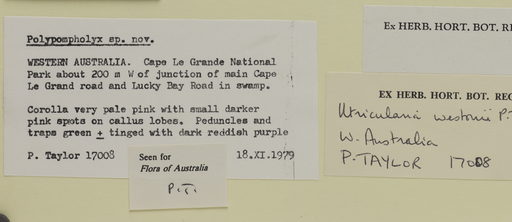 Polypompholyx sp. nov.
WESTERN AUSTRALIA. Cape Le Grande National
Park about 200 m W of junction of main Cape
Le Grand road and Lucky Bay Road in swamp.
Corolla very pale pink with small darker
pink spots on callus lobes. Peduncles and
traps green ± tinged with dark reddish purple
P. Taylor 17008
18.XI.1979
Seen for
Flora of Australia
P.T.
Ex HERB. HORT. BOT. RE
EX HERB. HORT. BOT. REG
Utricularia westonii P.T
W. Australia
P. TAYLOR 17008